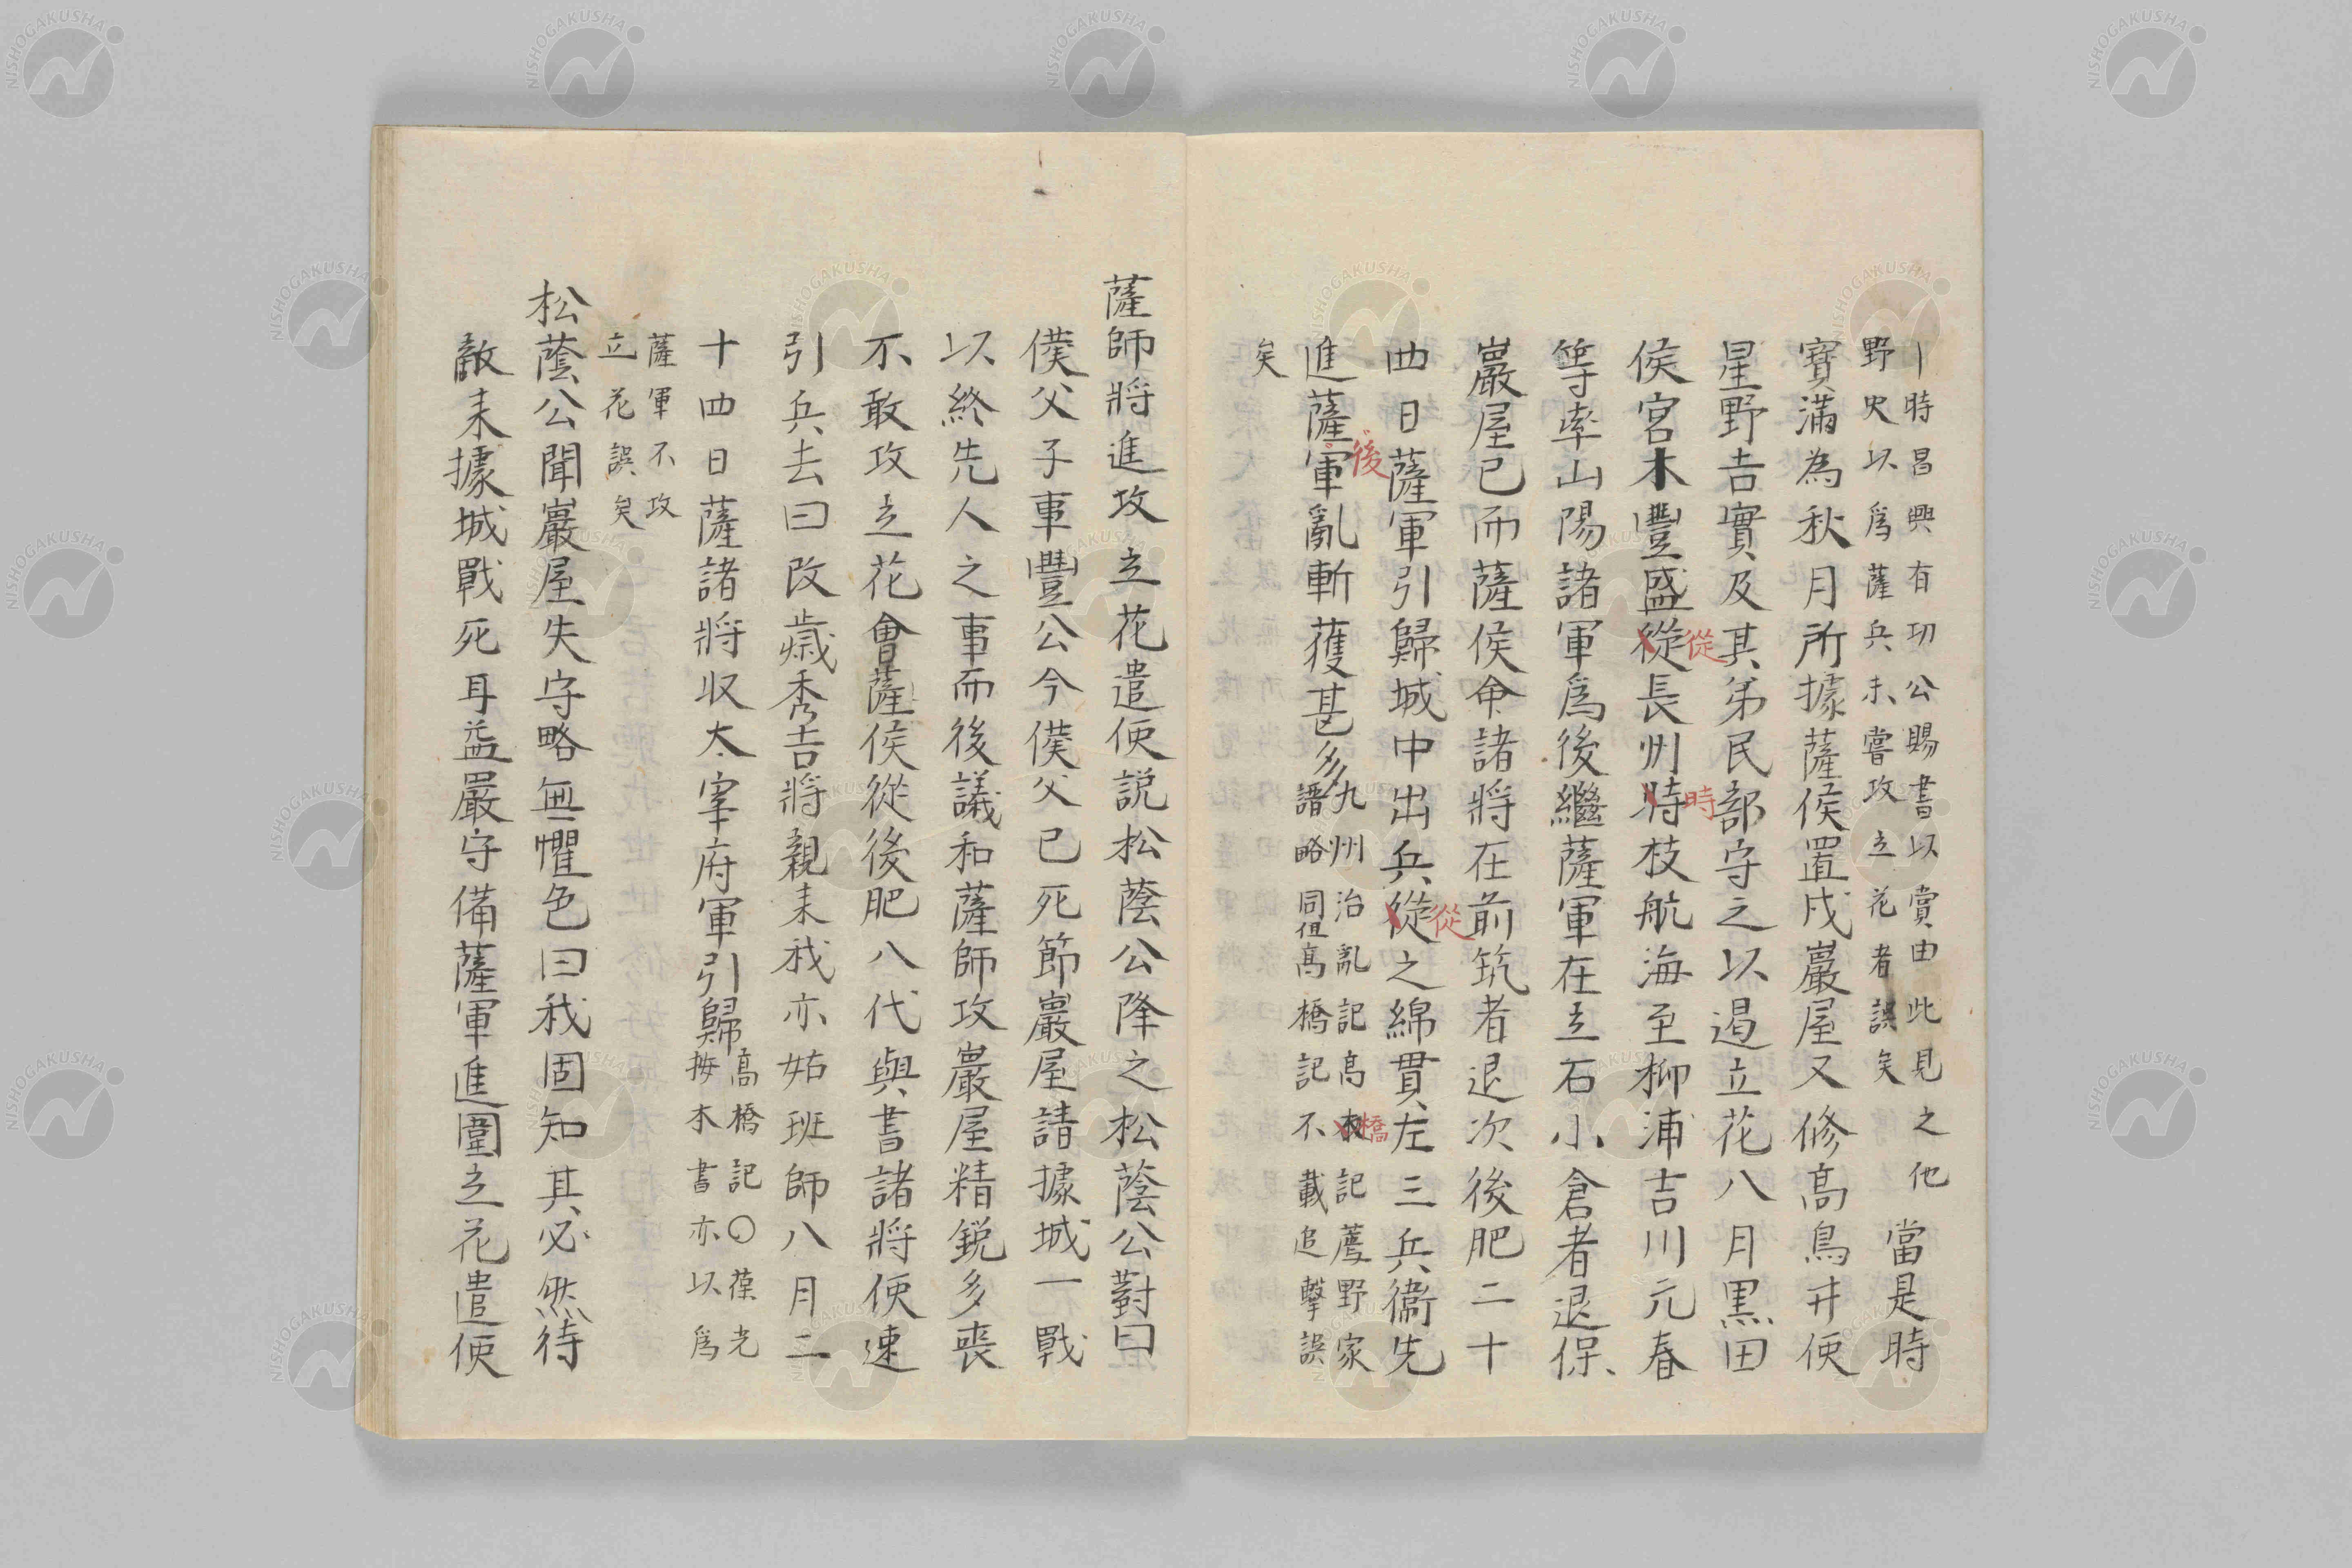 丨時昌興有功公賜書以賞由此見之他
野史以爲薩兵未嘗攻立花者誤矣
當是時
寶滿為秋月所據薩侯置戍巖屋又修高鳥井使
星野吉實及其弟民部守之以遏立花八月黒田
從時
侯宮木豐盛從長州時枝航海至柳浦吉川元春
等率山陽諸軍爲後繼薩軍在立石小倉者退保
巖屋已而薩侯命諸將在前筑者退次後肥二十
從
四日薩軍引歸城中出兵從之綿貫左三兵衞先
後
進薩軍亂斬獲甚多
九州治亂記髙橋記薦野家
譜略同但髙橋記不載追擊誤
矣
薩師將進攻立花遣使説松蔭公降之松蔭公對曰
僕父子事豐公今僕父已死節巖屋請據城一戰
以終先人之事而後議和薩師攻巖屋精鋭多喪
不敢攻立花會薩侯從後肥八代與書諸將使速
引兵去曰改歳秀吉將親来我亦姑班師八月二
十四日薩諸將収太宰府軍引歸
髙橋記〇葆光
按本書亦以爲
薩軍不攻
立花誤矣
松蔭公聞巖屋失守略無懼色曰我固知其必然待
敵来據城戰死耳益嚴守備薩軍進圍立花遣使
NISHOGAKUSHA